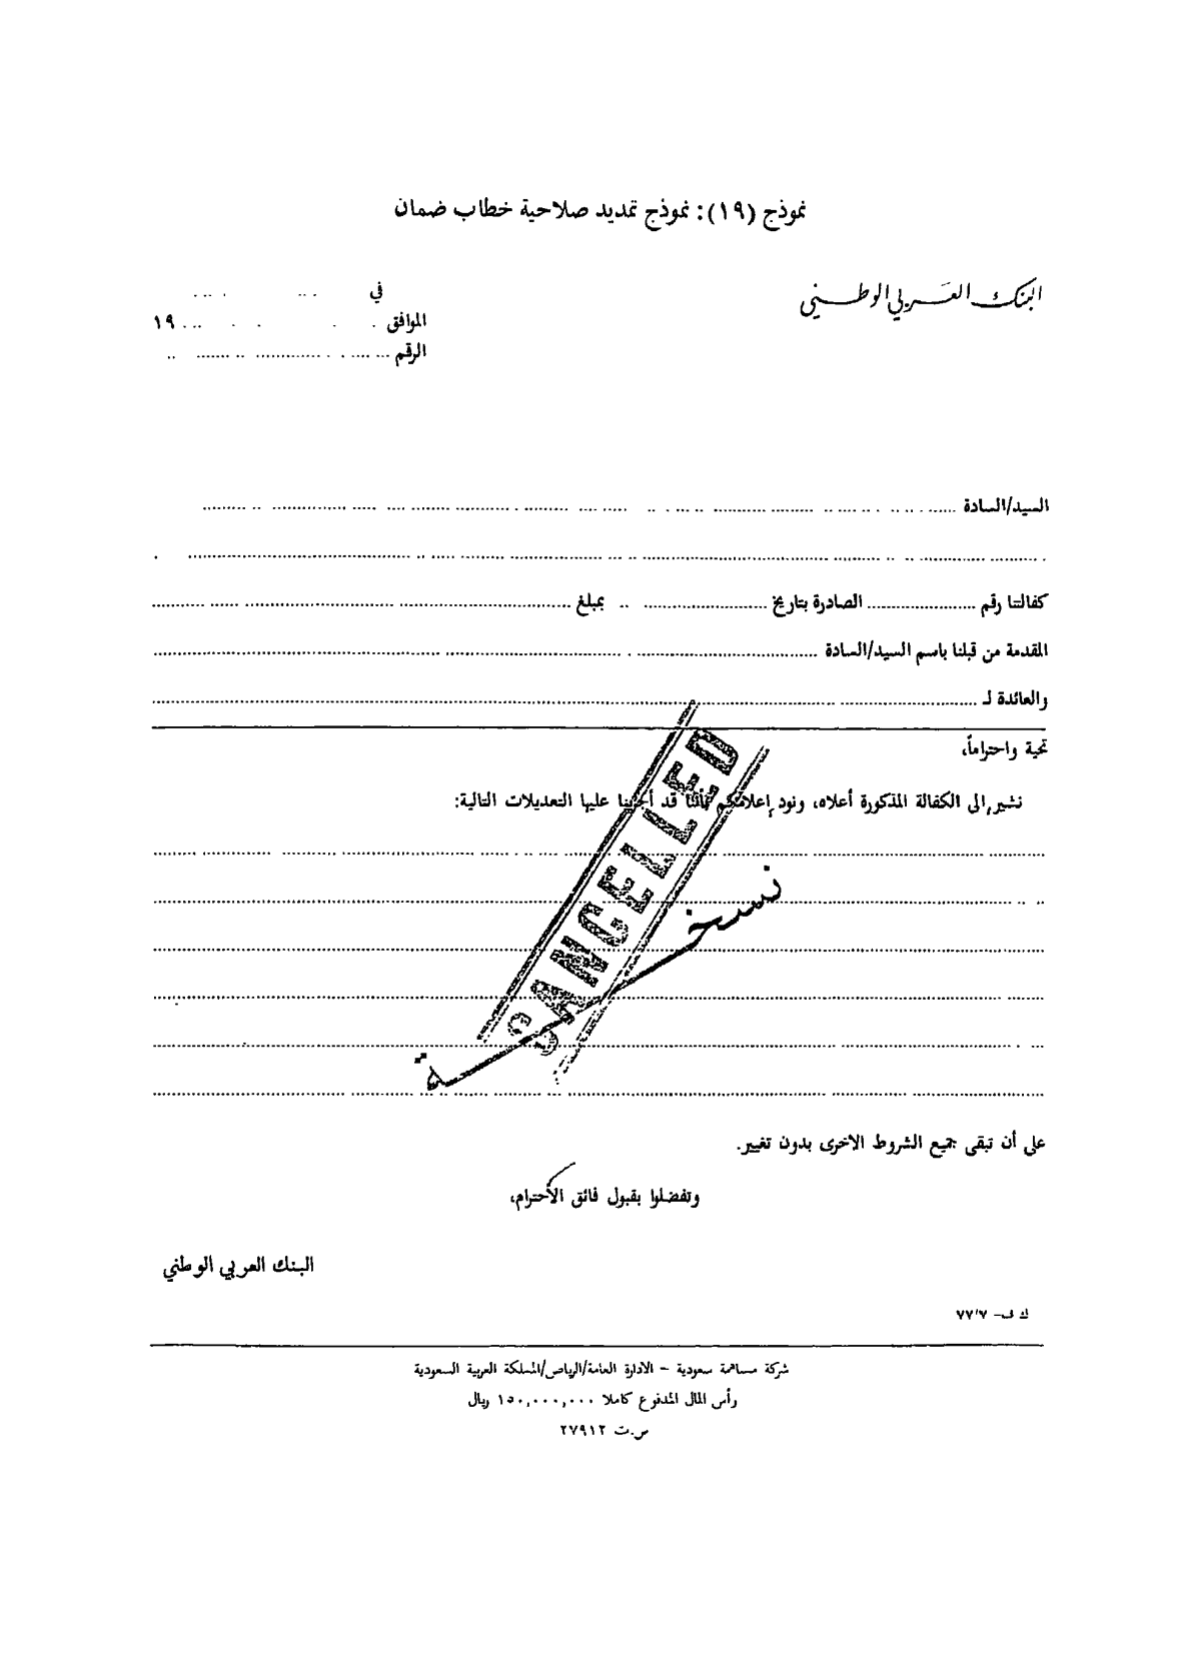 نموذج (١٩): نموذج تمديد صلاحية خطاب ضمان
البنك العربي الوطني
في
الموافق ١٩
الرقم
السيد/السادة
كفالتنا رقم الصادرة بتاريخ بمبلغ
المقدمة من قبلنا باسم السيد/السادة
والعائدة لـ
تحية واحتراماً،
نشير إلى الكفالة المذكورة أعلاه، ونود إعلامكم بأننا قد أجرينا عليها التعديلات التالية:
CANCELLED
نسخة
على أن تبقى جميع الشروط الاخرى بدون تغيير.
وتفضلوا بقبول فائق الأحترام،
البنك العربي الوطني
ك ف- ٧٧/٧
شركة مساهمة سعودية - الادارة العامة/الرياض/المملكة العربية السعودية
رأس المال المدفوع كاملا ١٥٠,٠٠٠,٠٠٠ ريال
س.ت ٢٧٩١٢